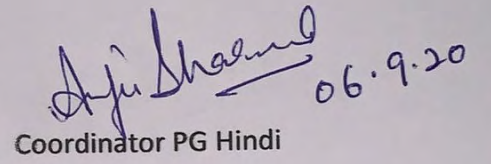 Anju Sharma
06.9.20
Coordinator PG Hindi